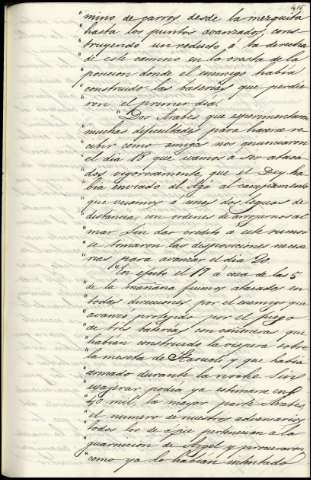 "mino de carros desde la mezquita
"hasta los puntos avanzados, cons
"truyendo un reducto á la derecha
"de este camino en la cresta de la
"posicion donde el enemigo habia
"construido las baterias que perdie
"ron el primer dia.
"Dos Arabes que esperimentaron
"muchas dificultades para hacerse re
"cibir como amigos nos anunciaron
"el dia 18 que ibamos á ser ataca
"dos vigorosamente que el Dey ha
"bia enviado de Argel al campamento
"que veiamos á unas dos leguas de
"distancia con ordenes de arrojarnos al
"mar. Sin dar credito á este rumor
"se tomaron las disposiciones necesa
"rias para avanzar el dia 20.
"En efecto el 19 á cosa de las 5
"de la mañana fuimos atacados en
"todas direcciones por el enemigo que
"avanzó protegido por el fuego
"de tres baterias con cañoneras que
"habian construido la vispera sobre
"la meseta de Staoueli y que habia
"armado durante la noche. Sin
"exagerar podia estimarse en
"40 mil, la mayor parte Arabes,
"el numero de nuestros adversarios
"todos los de á pie pertenecian á la
"guarnicion de Argel y procuraron
"como ya lo habian intentado